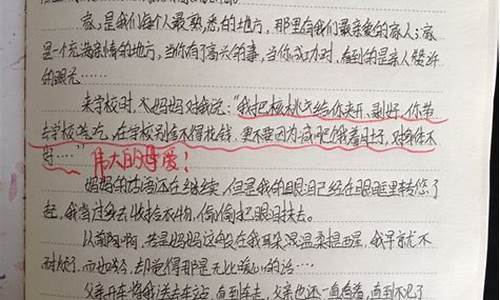 家，是我们每个人最熟悉的地方，那里有我们最亲爱的家人；家
是一个充满亲情的地方，当你有了高兴的事，当你成功时，看到的是亲人赞许
的眼光……
来学校时，妈妈对我说：“我把核桃给你夹开，剥好，你带
去学校吃，在学校别舍不得花钱，更不要因为减肥饿着肚子，对身体不
好……”伟大的母爱！
妈妈的话还在继续，但是我的眼泪已经在眼眶里转悠了
起，我当过身去收拾衣物，偷偷把眼泪抹去。
以前啊，若是妈妈这般在我耳朵温柔提醒，我早就不
耐烦了，而如今，却觉得那是无比暖心的话……
父亲开车将我送去车站，直到车走，父亲也还一直看着，直到不见了